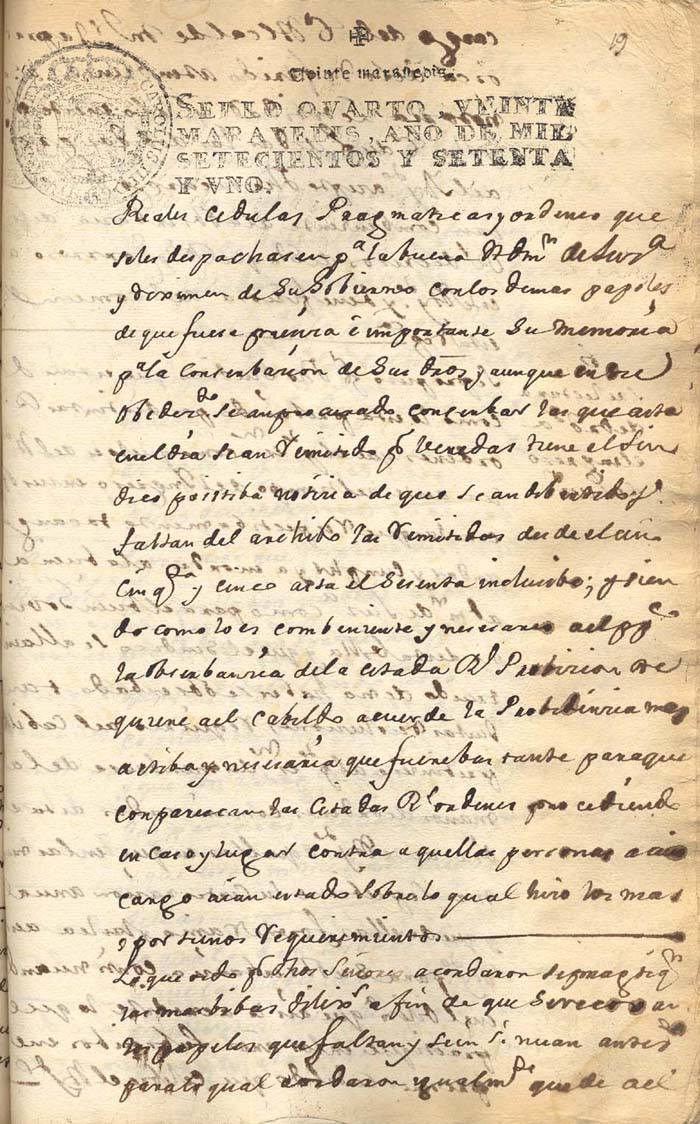 19
Veinte maravedis.
SELLO QVARTO, VEINTE
MARAVEDIS, AÑO DE MIL
SETECIENTOS Y SETENTA
Y VNO.
Reales Cedulas Pragmaticas y ordenes que
se les despachasen pa. la buena Adm.on de
y de su Gobierno con los demas papeles
de que fuese precisa è importante su memoria
pa. la Conserbacion de sus dros, y aunque en
se an procurado conserbar las que asta
en el dia se an Remitido pr. Veredas tiene el Sin
dico positiba noticia de que se an dibertido y
faltan del archibo las Remitidas desde el año
Cinqta. y cinco asta el Sesenta inclusibo; y sien
do como lo es combeniente y nesesario
la obserbancia de la citada Rl. Probicion re
quiere a el Cabildo acuerde la Probidencia mas
actiba y nesesaria que fuere bastante para que
conparescan las citadas Rs. ordenes procediendo
en caso y lugar contra aquellas personas a cuio
cargo aian estado sobre lo qual hizo los mas
oportunos Requerimientos
Lo que oido pr. dhos Señores acordaron se
las mas bibas dilixs. a fin de que se
los papeles que faltan y
para lo qual acordaron qe. de a el